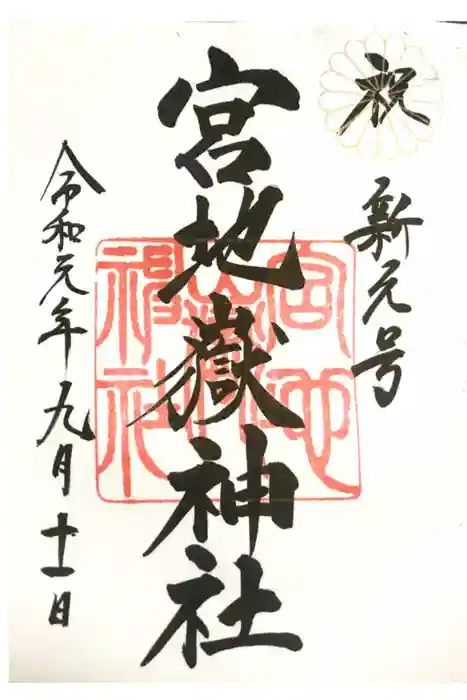 祝
新元号
宮地嶽神社
令和元年九月十一日
宮地
嶽
神社